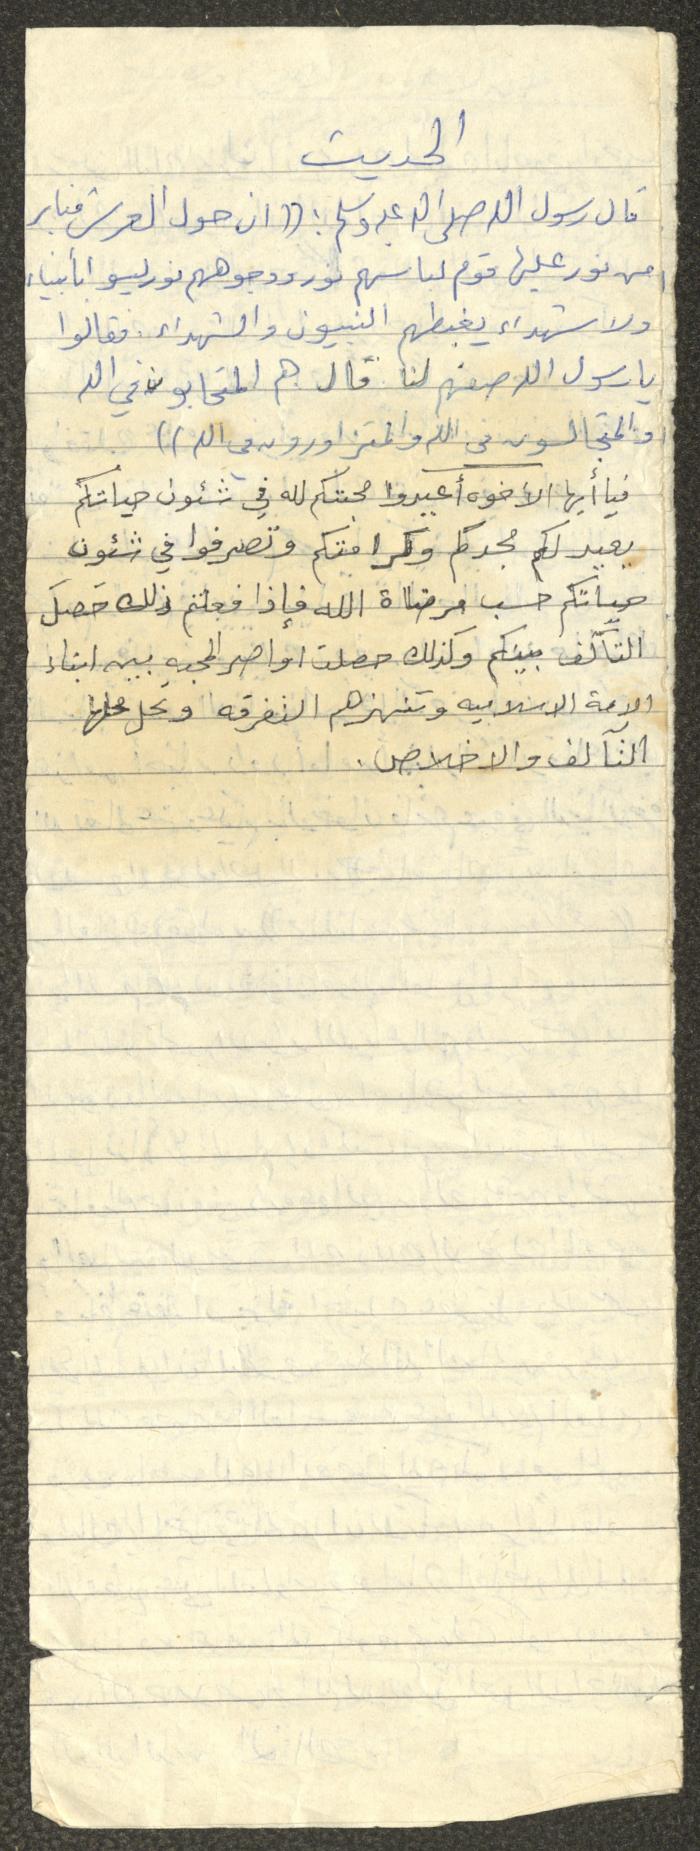 الحديث
قال رسول الله صلى الله عليه وسلم: (( ان حول العرش منابر
من نور عليها قوم لباسهم نور ووجوههم نور ليسو بأنبياء
ولا شهداء يغبطهم النبيون والشهداء. فقالوا
يا رسول الله صفهم لنا قال هم المتحابون في الله
والمتجالسون في الله والمتزاورون في الله ))
فيا أيها الأخوه أعيدوا محبتكم لله في شئون حياتكم
يعيد لكم مجدكم وكرامتكم وتصرفوا في شئون
حياتكم حسب مرضاة الله فإذا فعلتم ذلك حَصلَ
التآلف بينكم وكذلك حصلت اواصر المحبه بين ابناء
الامة الاسلاميه وتنهزم التفرقه وتحل محلها
التآلف والاخلاص.